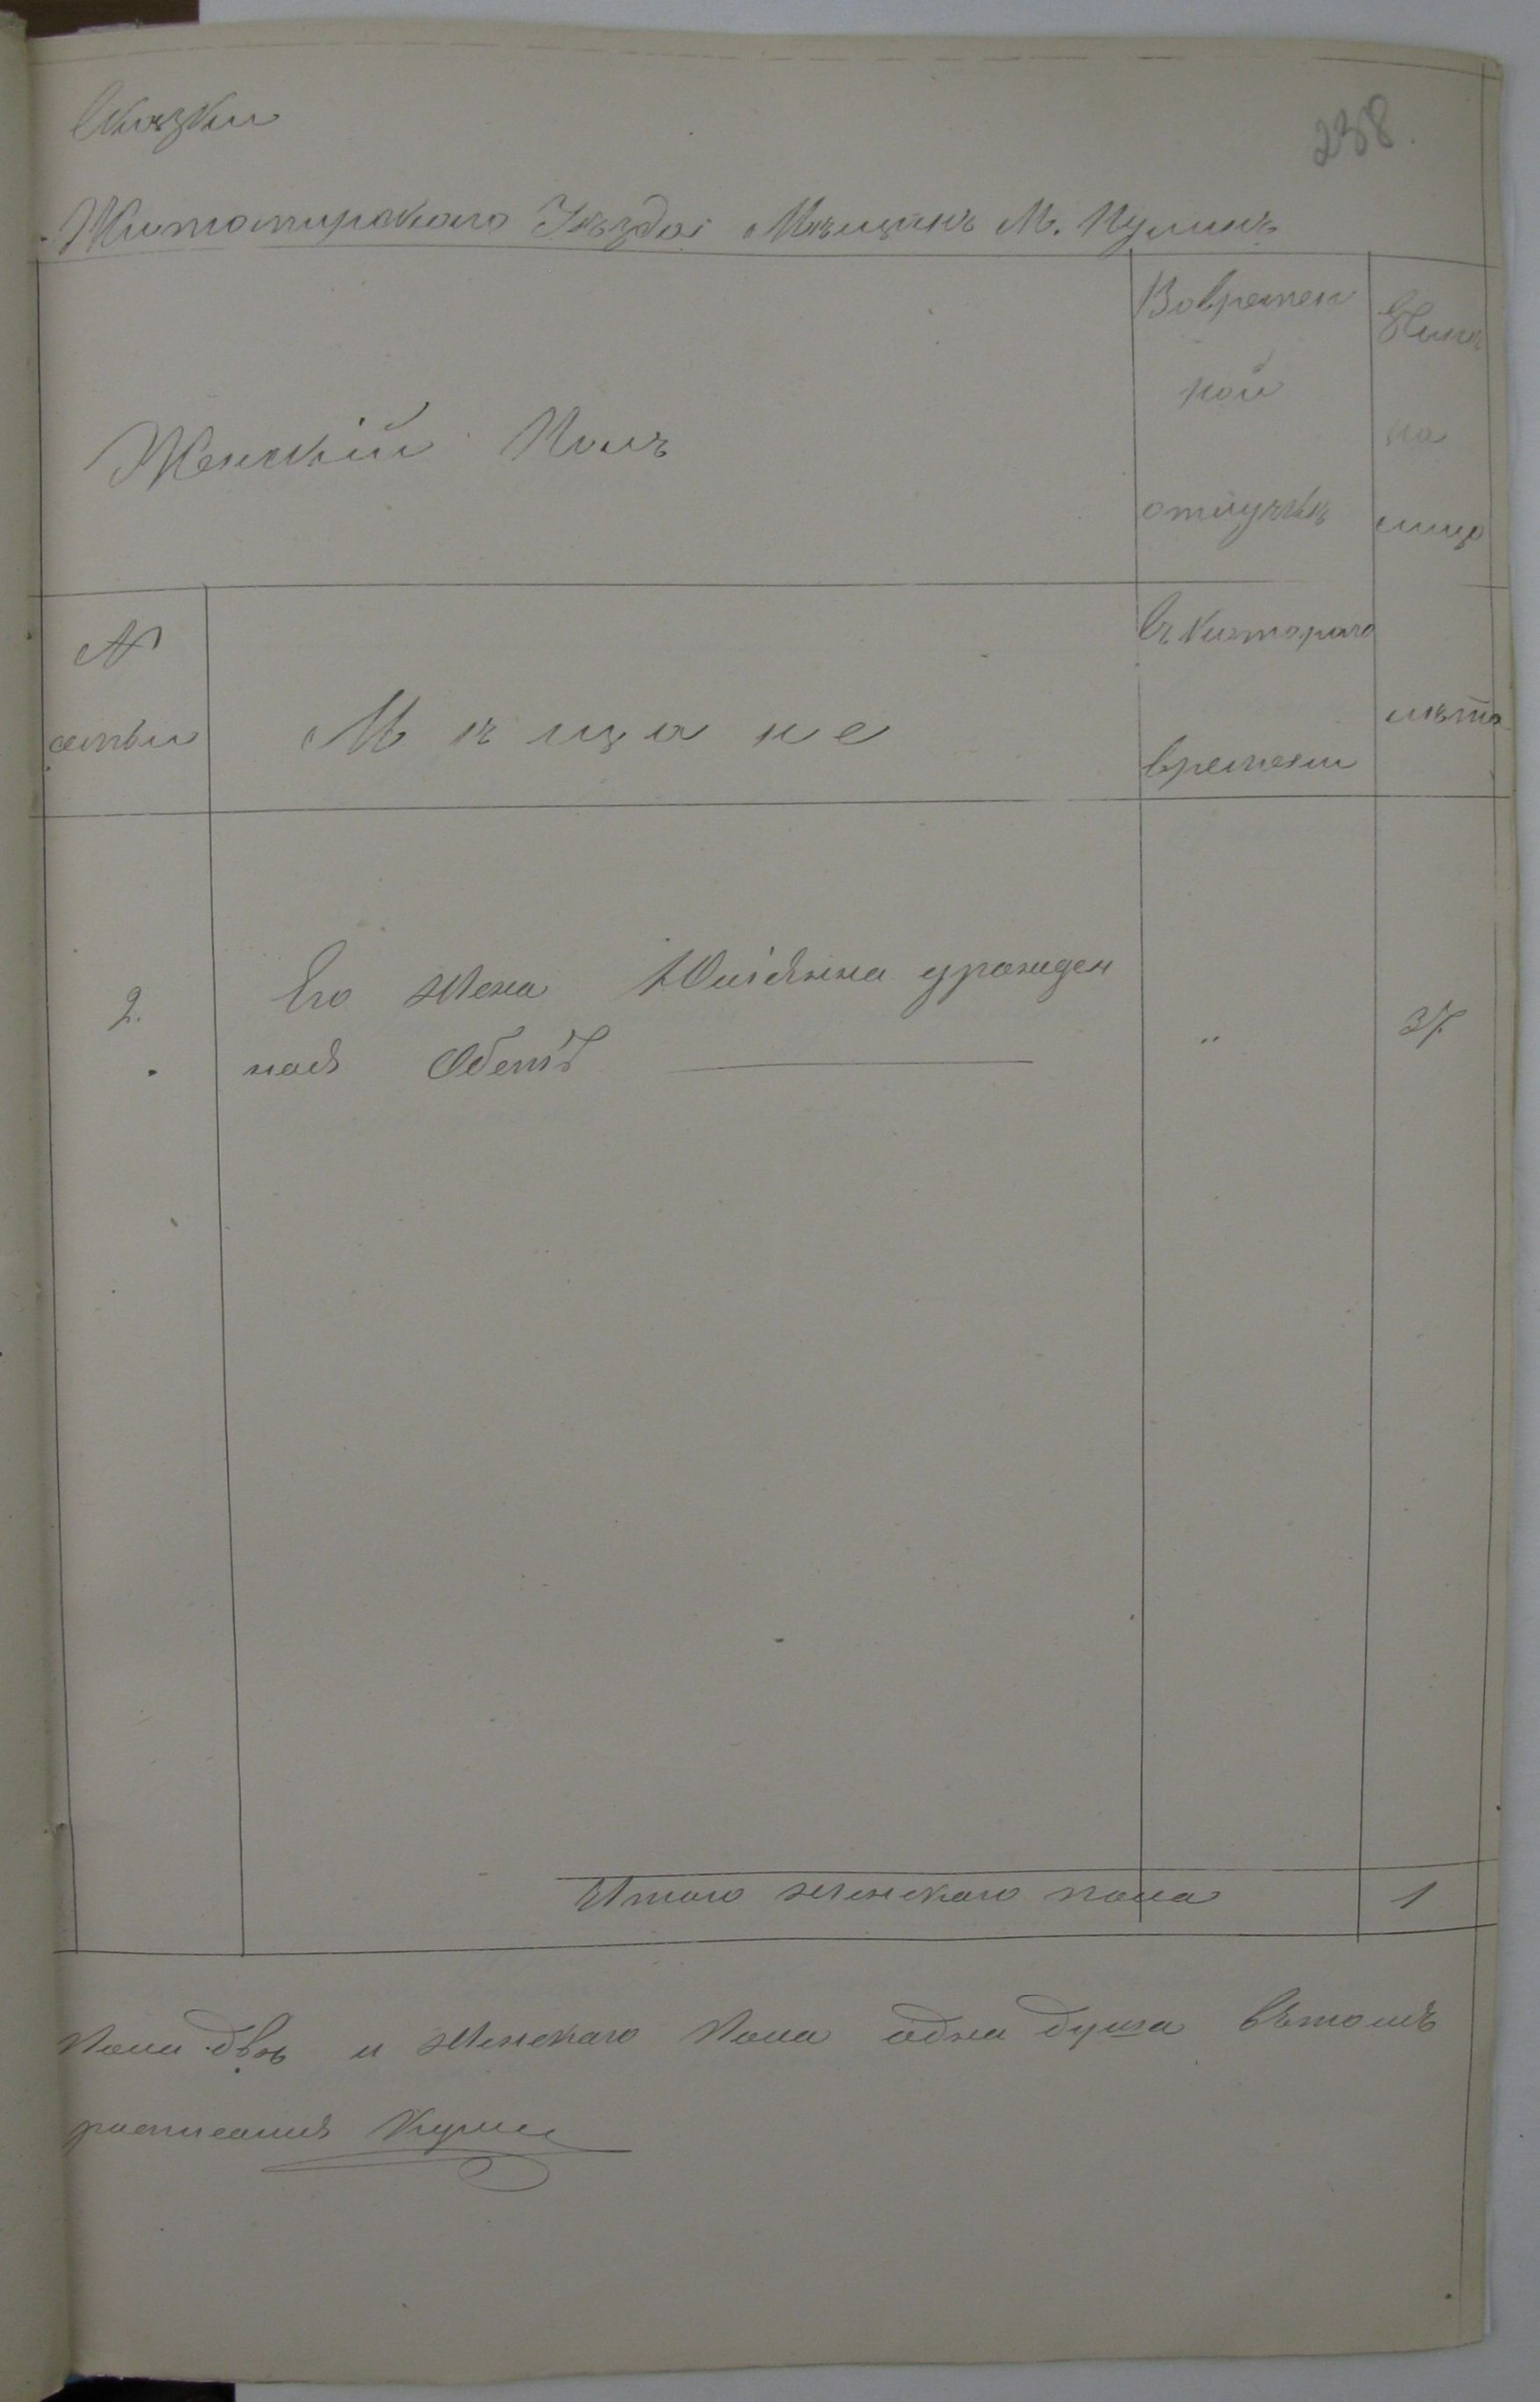 Сказки
238.
Житомирскаго Уѣзда Мѣщанъ М. Пулинъ
Женскій Полъ
Вовремен
ной
отлучкѣ
Нынѣ
на
лицо
№
семьи
Мѣщане
Съ котораго
времени
лѣта
2.
Его жена Юліянна урожден
ная
" 37.
Итого женскаго пола 1
Пола двѣ и женскаго Пола одна душа Вътомъ